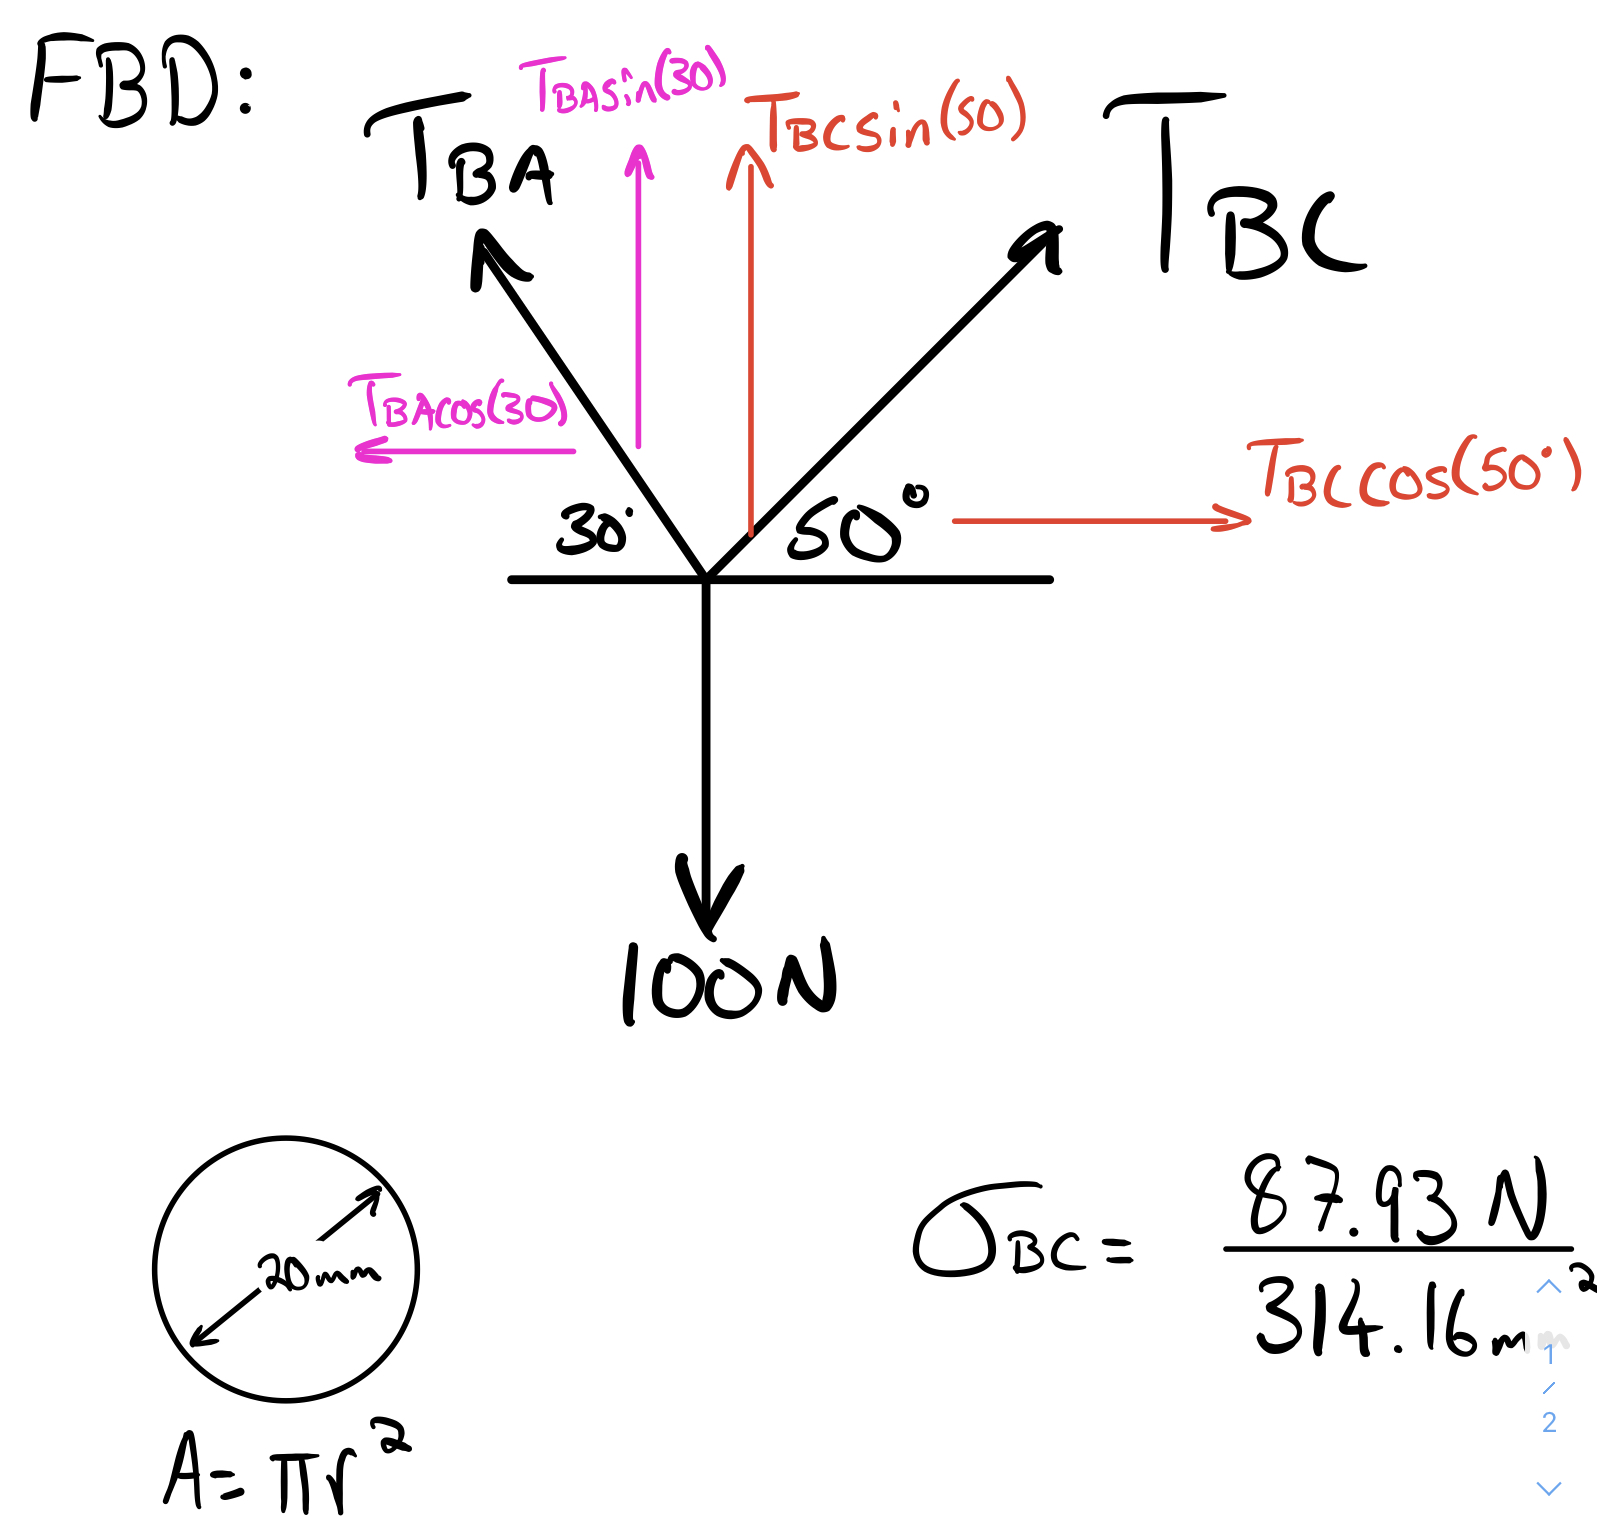 FBD:
T_BA sin(30)
T_BC sin(50)
T_BA
T_BC
T_BA cos(30)
T_BC cos(50°)
30°
50°
100N
20mm
A = πr²
σ_BC = 87.93 N
314.16mm²
1
/
2